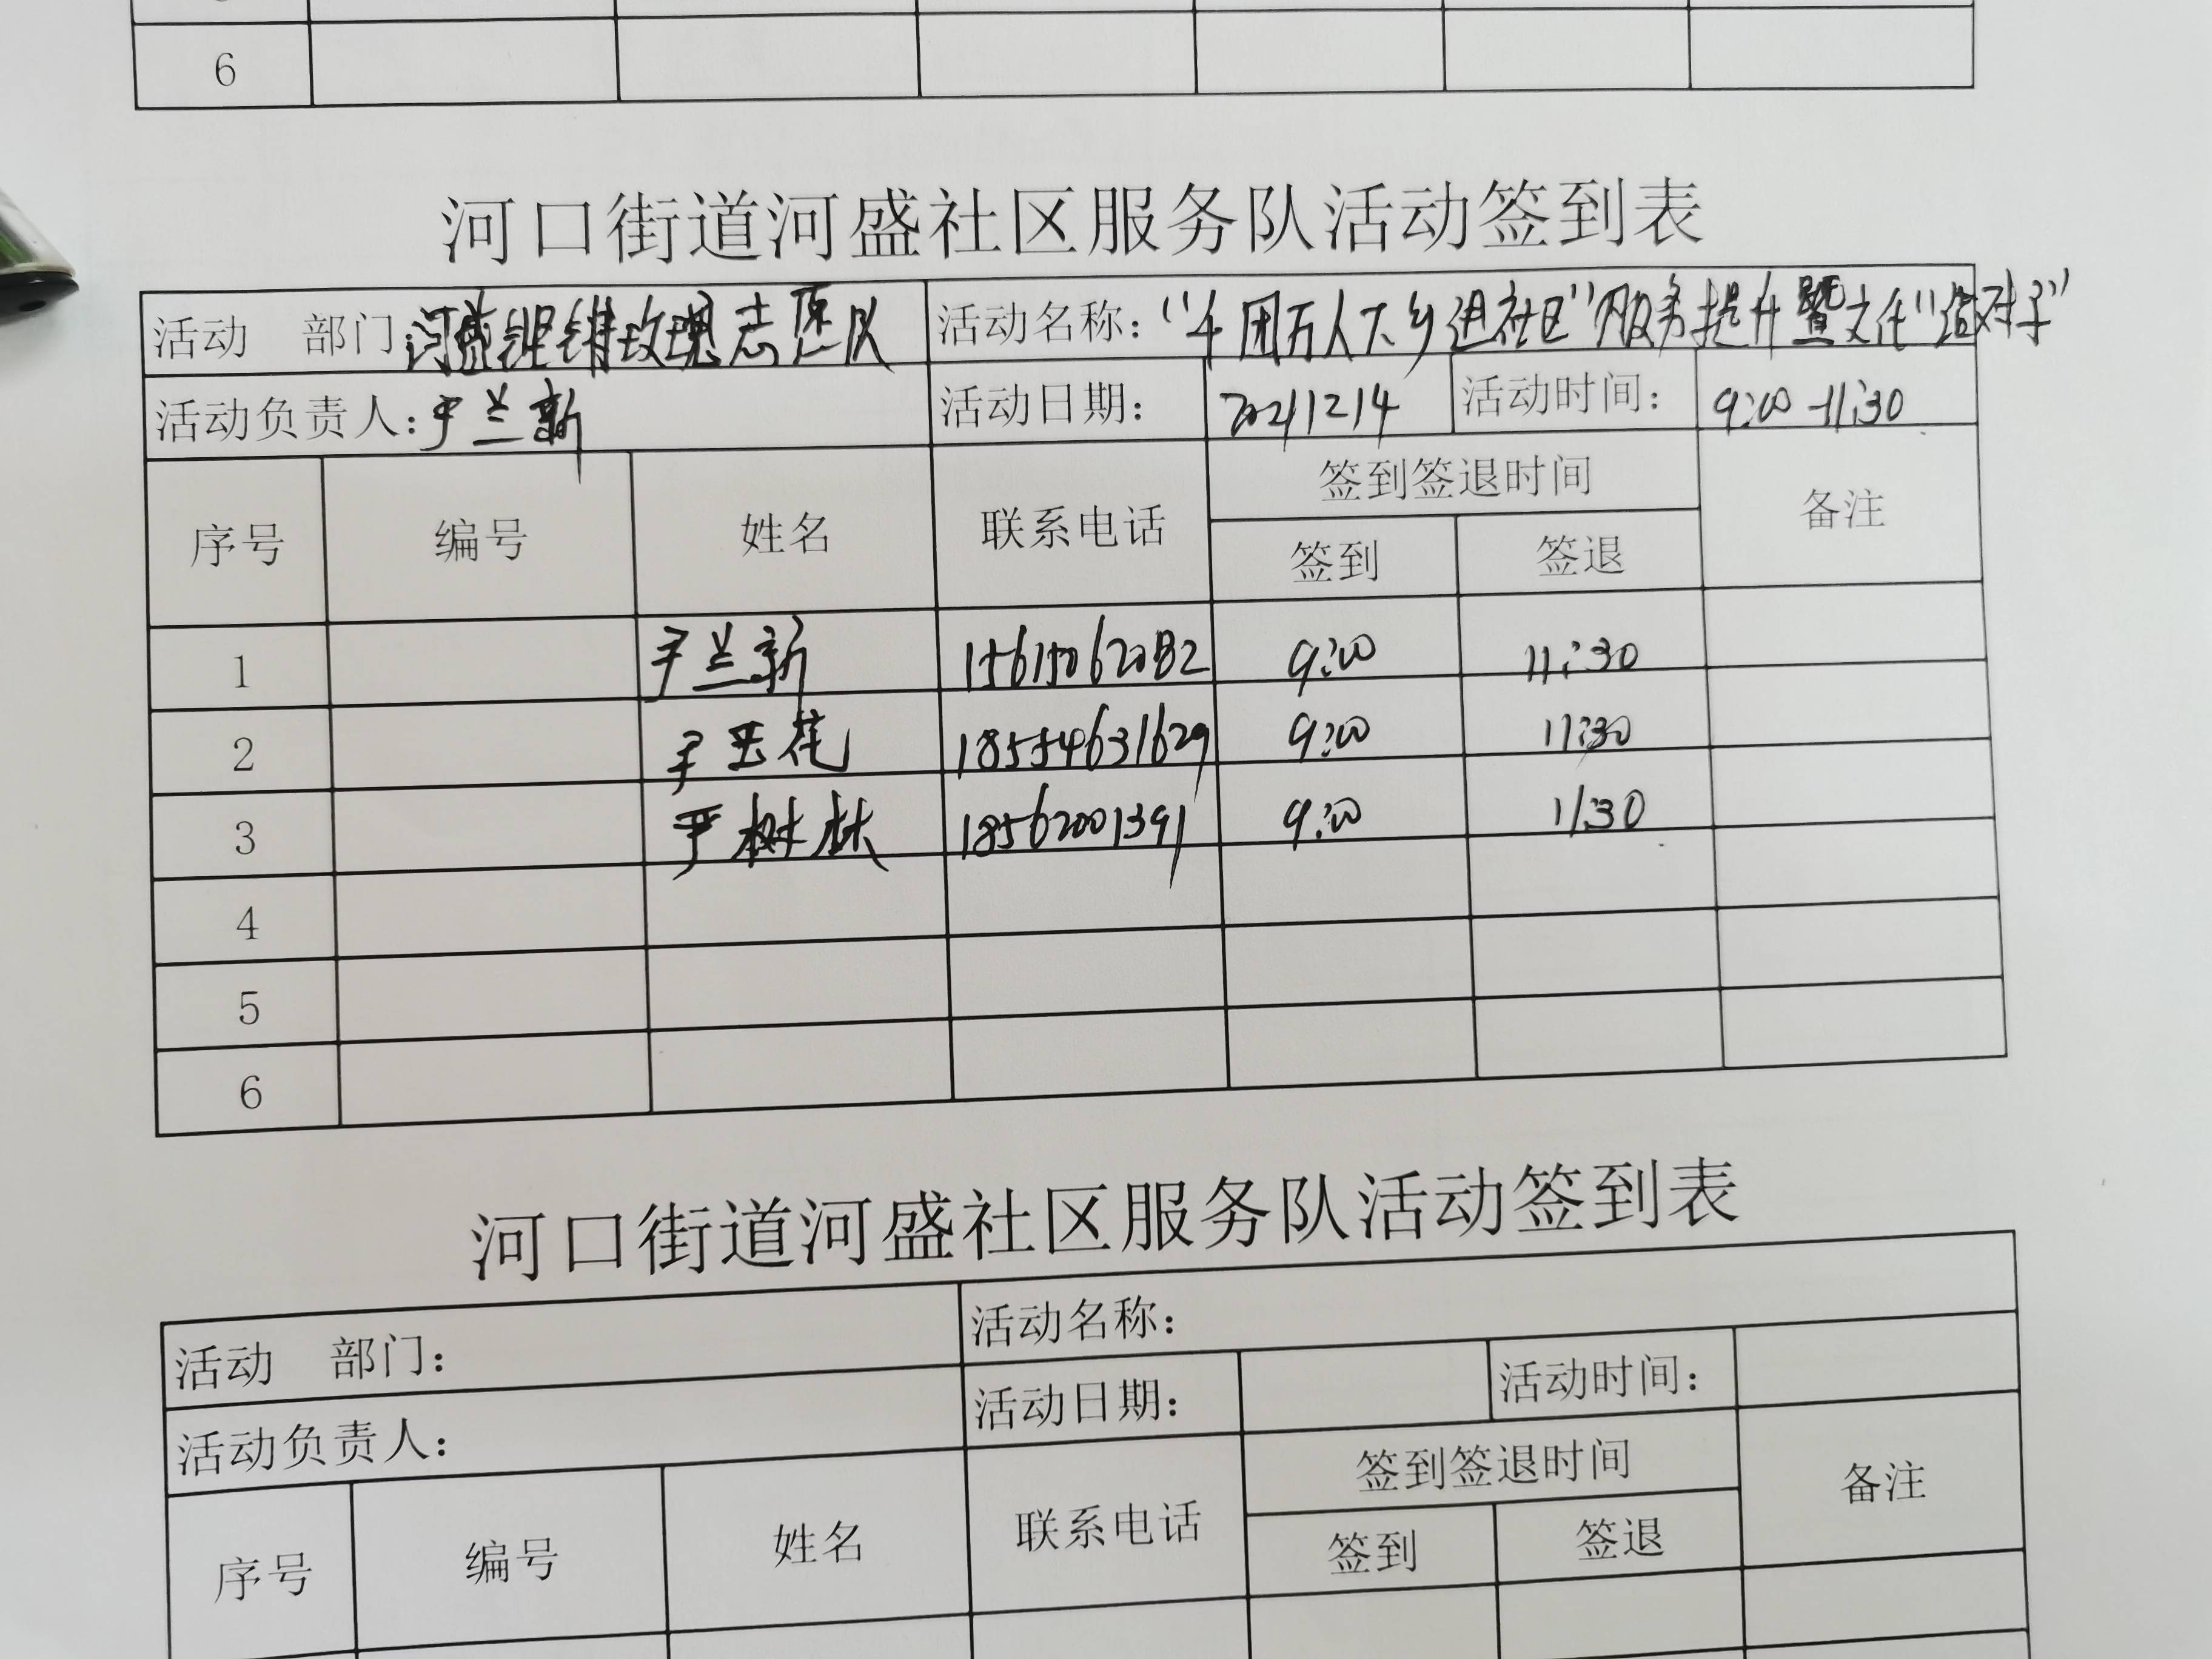 6
河口街道河盛社区服务队活动签到表
活动 部门:河盛铿锵玫瑰志愿队 活动名称:“千团万人下乡进社区”服务提升暨文化“结对子”
活动负责人:尹兰新 活动日期: 20211214 活动时间: 9:00-11:30
序号 编号 姓名 联系电话 签到签退时间 备注
签到 签退
1 尹兰新 9:00 11:30
2 尹玉花 18554631629 9:00 11:30
3 严树林 18562001391 9:00 11:30
4
5
6
河口街道河盛社区服务队活动签到表
活动 部门: 活动名称:
活动负责人: 活动日期: 活动时间:
序号 编号 姓名 联系电话 签到签退时间 备注
签到 签退